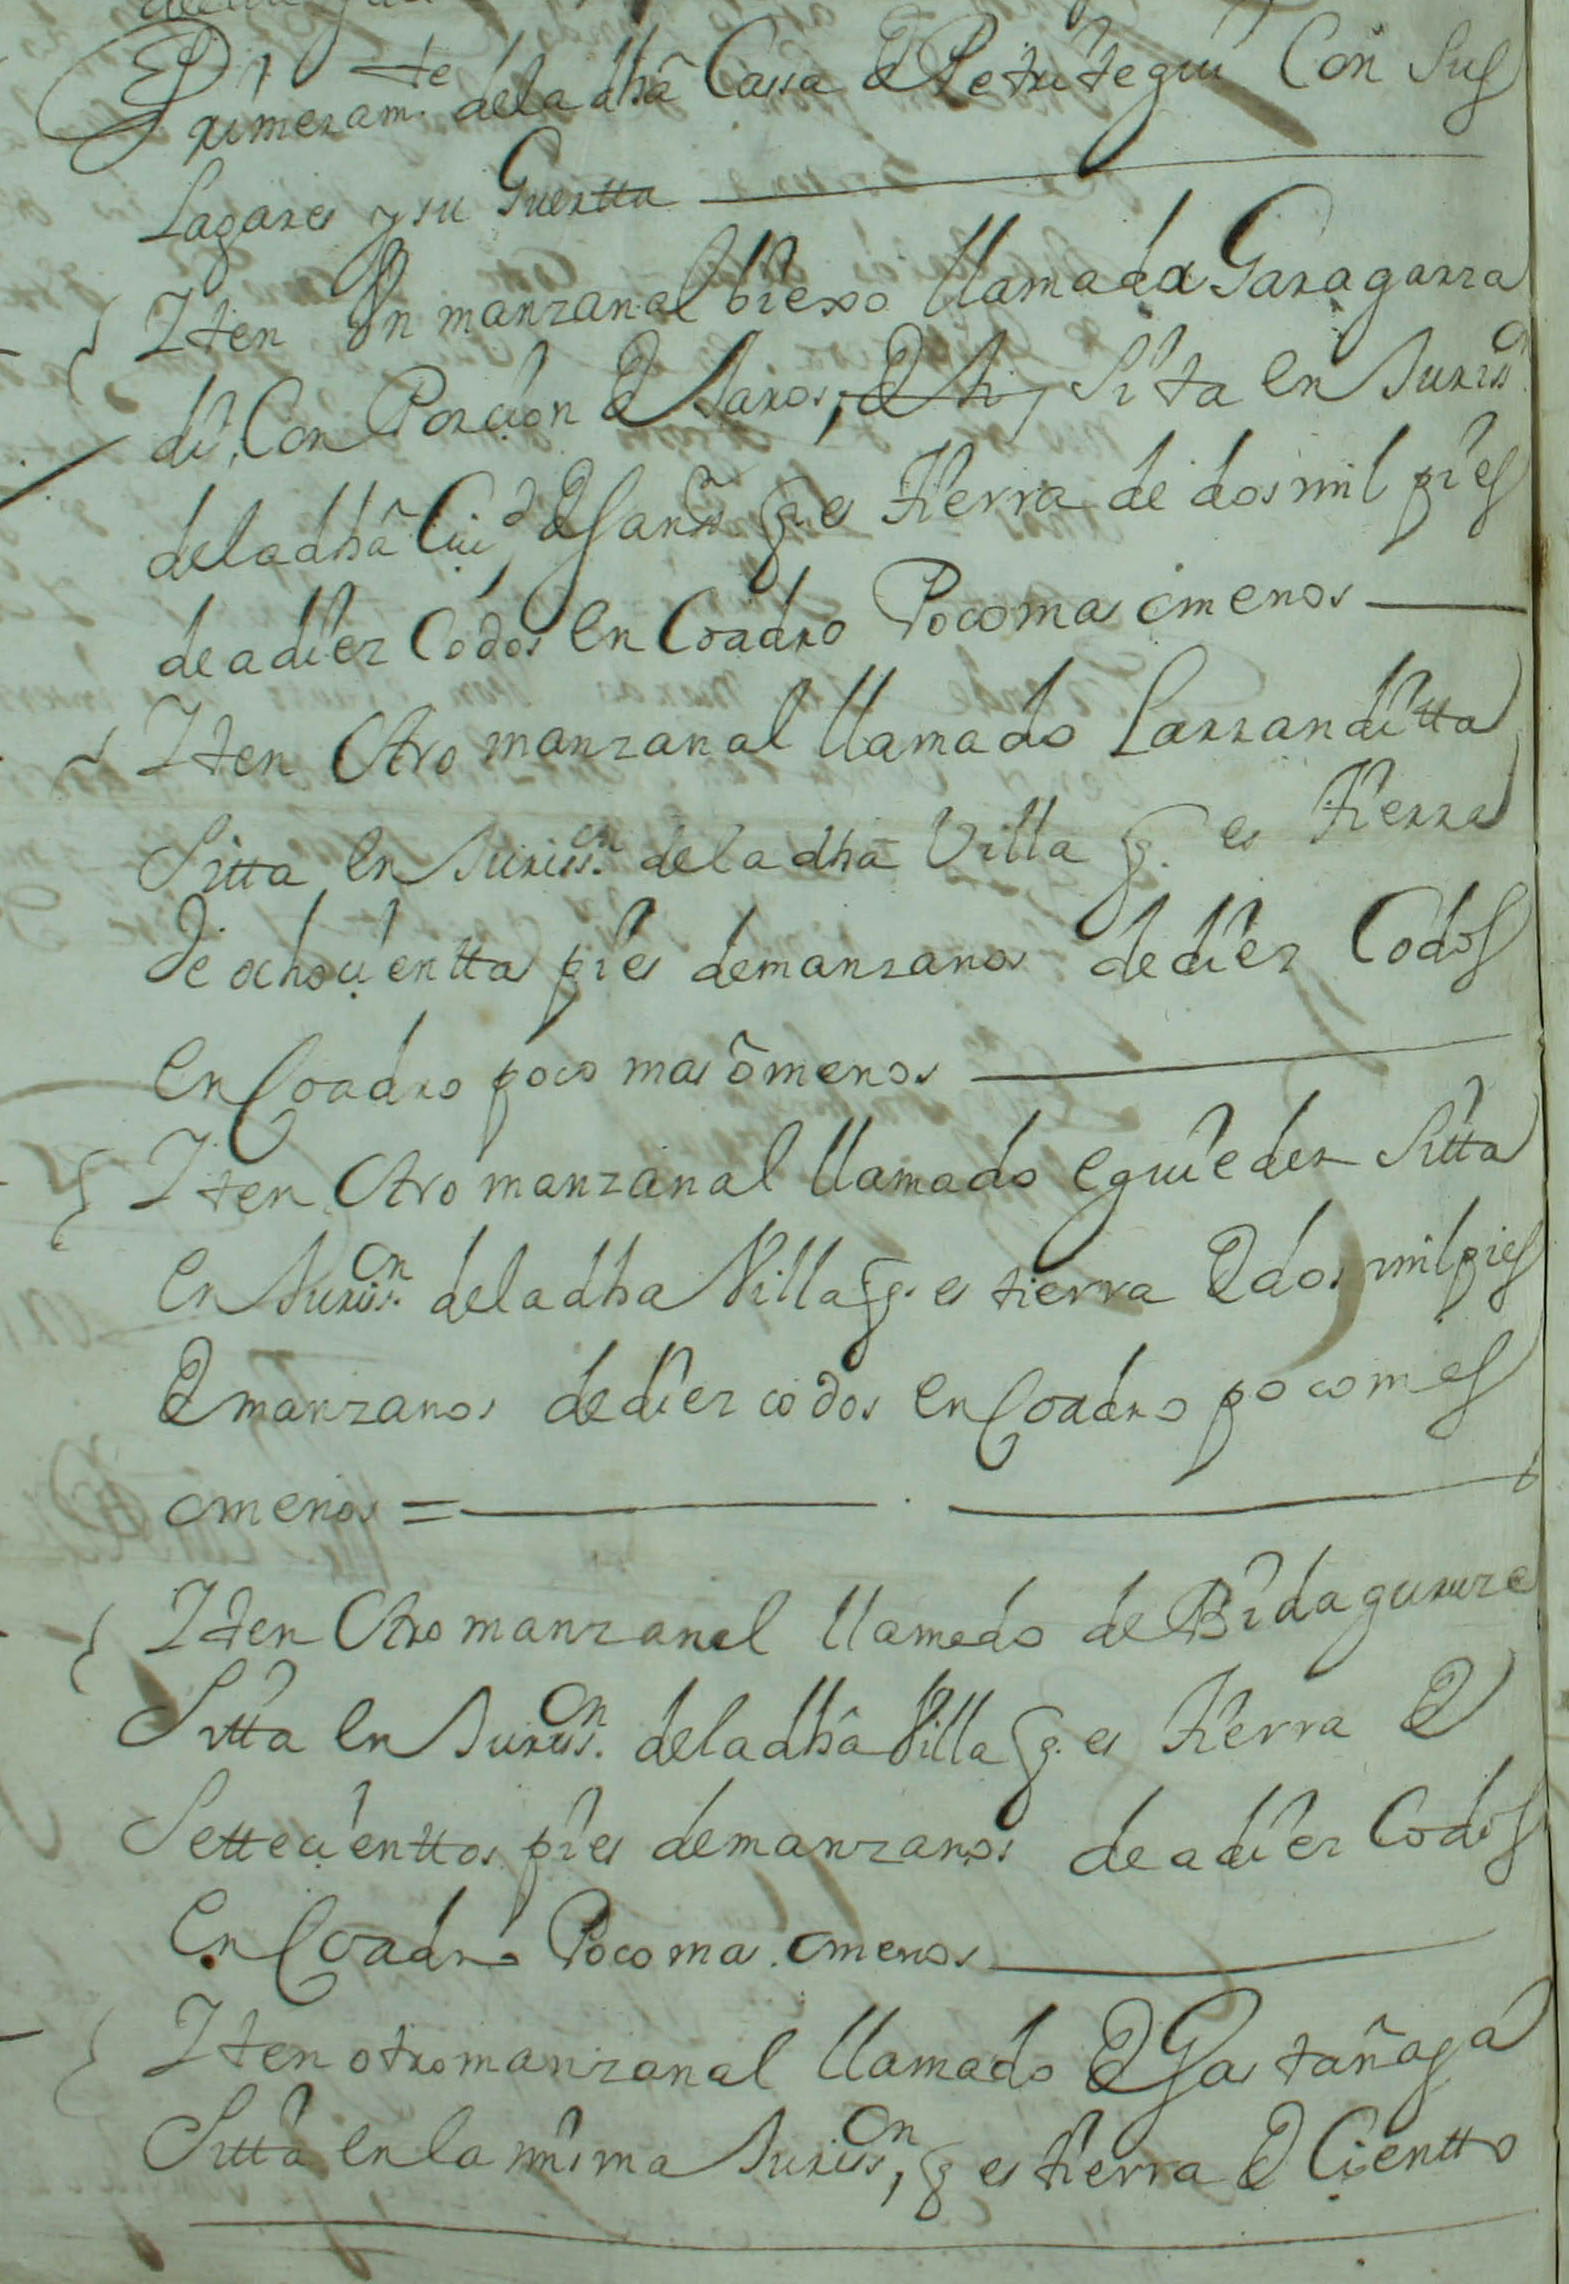 Primeram.te dela dhã Cassa de Petritegui Con sus
Lagares y su Guertta
Iten Un manzanal biexo llamada Garagarza
di, Con Porcion de Jaros, sita en Juriss.n
dela dhã Ciu.d de San ss.n q. es tierra de dos mil pies
de a diez Codos en Coadro Poco mas o menos
Iten Otro manzanal llamado Larranditta
Sitta en Juriss.on dela dhã Villa q. es tierra
de ochocientta pies de manzanos de diez Codos
en Coadro poco mas õ menos
Iten Otro manzanal llamado eguieder sitta
en Juriss.on dela dha Villa q. es tierra de dos mil pies
de manzanos de diez codos en Coadro poco mes
o menos =
Iten Otro manzanal llamado de Bidagurure
Sitta en Juriss.on dela dhã Villa q. es tierra de
Settecienttos pies de manzanos de a diez Codos
en Coadro Poco mas o menos
Iten otro manzanal llamado de Gastañaga
Sitta en la misma Juriss.on, q es tierra de Cientto